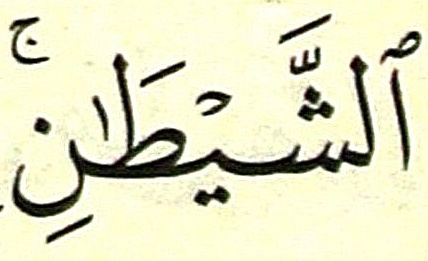 ٱلشَّيْطَٰنِ ۚ